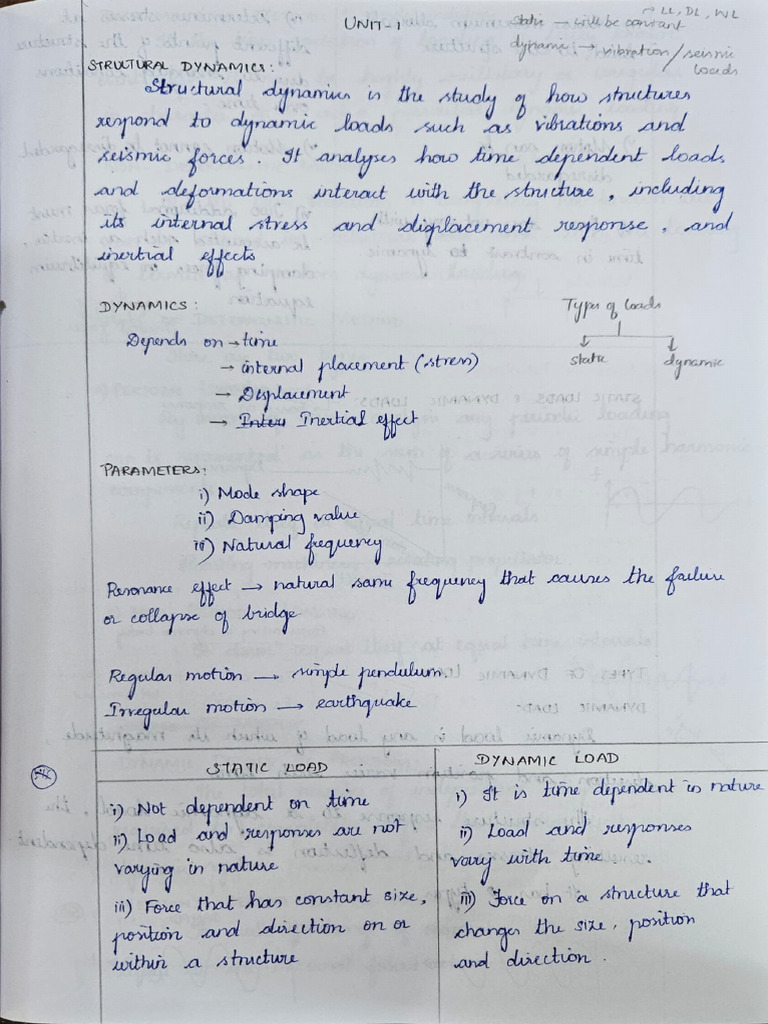 UNIT-1
LL, DL, WL
static → will be constant
dynamic → vibration / seismic
loads
STRUTURAL DYNAMICS:
Structural dynamics is the study of how structures
respond to dynamic loads such as vibrations and
seismic forces. It analyses how time dependent loads
and deformations interact with the structure, including
its internal stress and displacement response, and
inertial effects
DYNAMICS:
Depends on → time
→ internal placement (stress)
→ Displacement
→ Inertial effect
Types of loads
static
dynamic
PARAMETERS:
i) Mode shape
ii) Damping value
iii) Natural frequency
Resonance effect → natural same frequency that causes the failure
or collapse of bridge
Regular motion → simple pendulum.
Irregular motion → earthquake
STATIC LOAD
i) Not dependent on time
ii) Load and responses are not
varying in nature
iii) Force that has constant size,
position and direction on or
within a structure
DYNAMIC LOAD
i) It is time dependent in nature
ii) Load and responses
vary with time.
iii) Force on a structure that
changes the size, position
and direction.